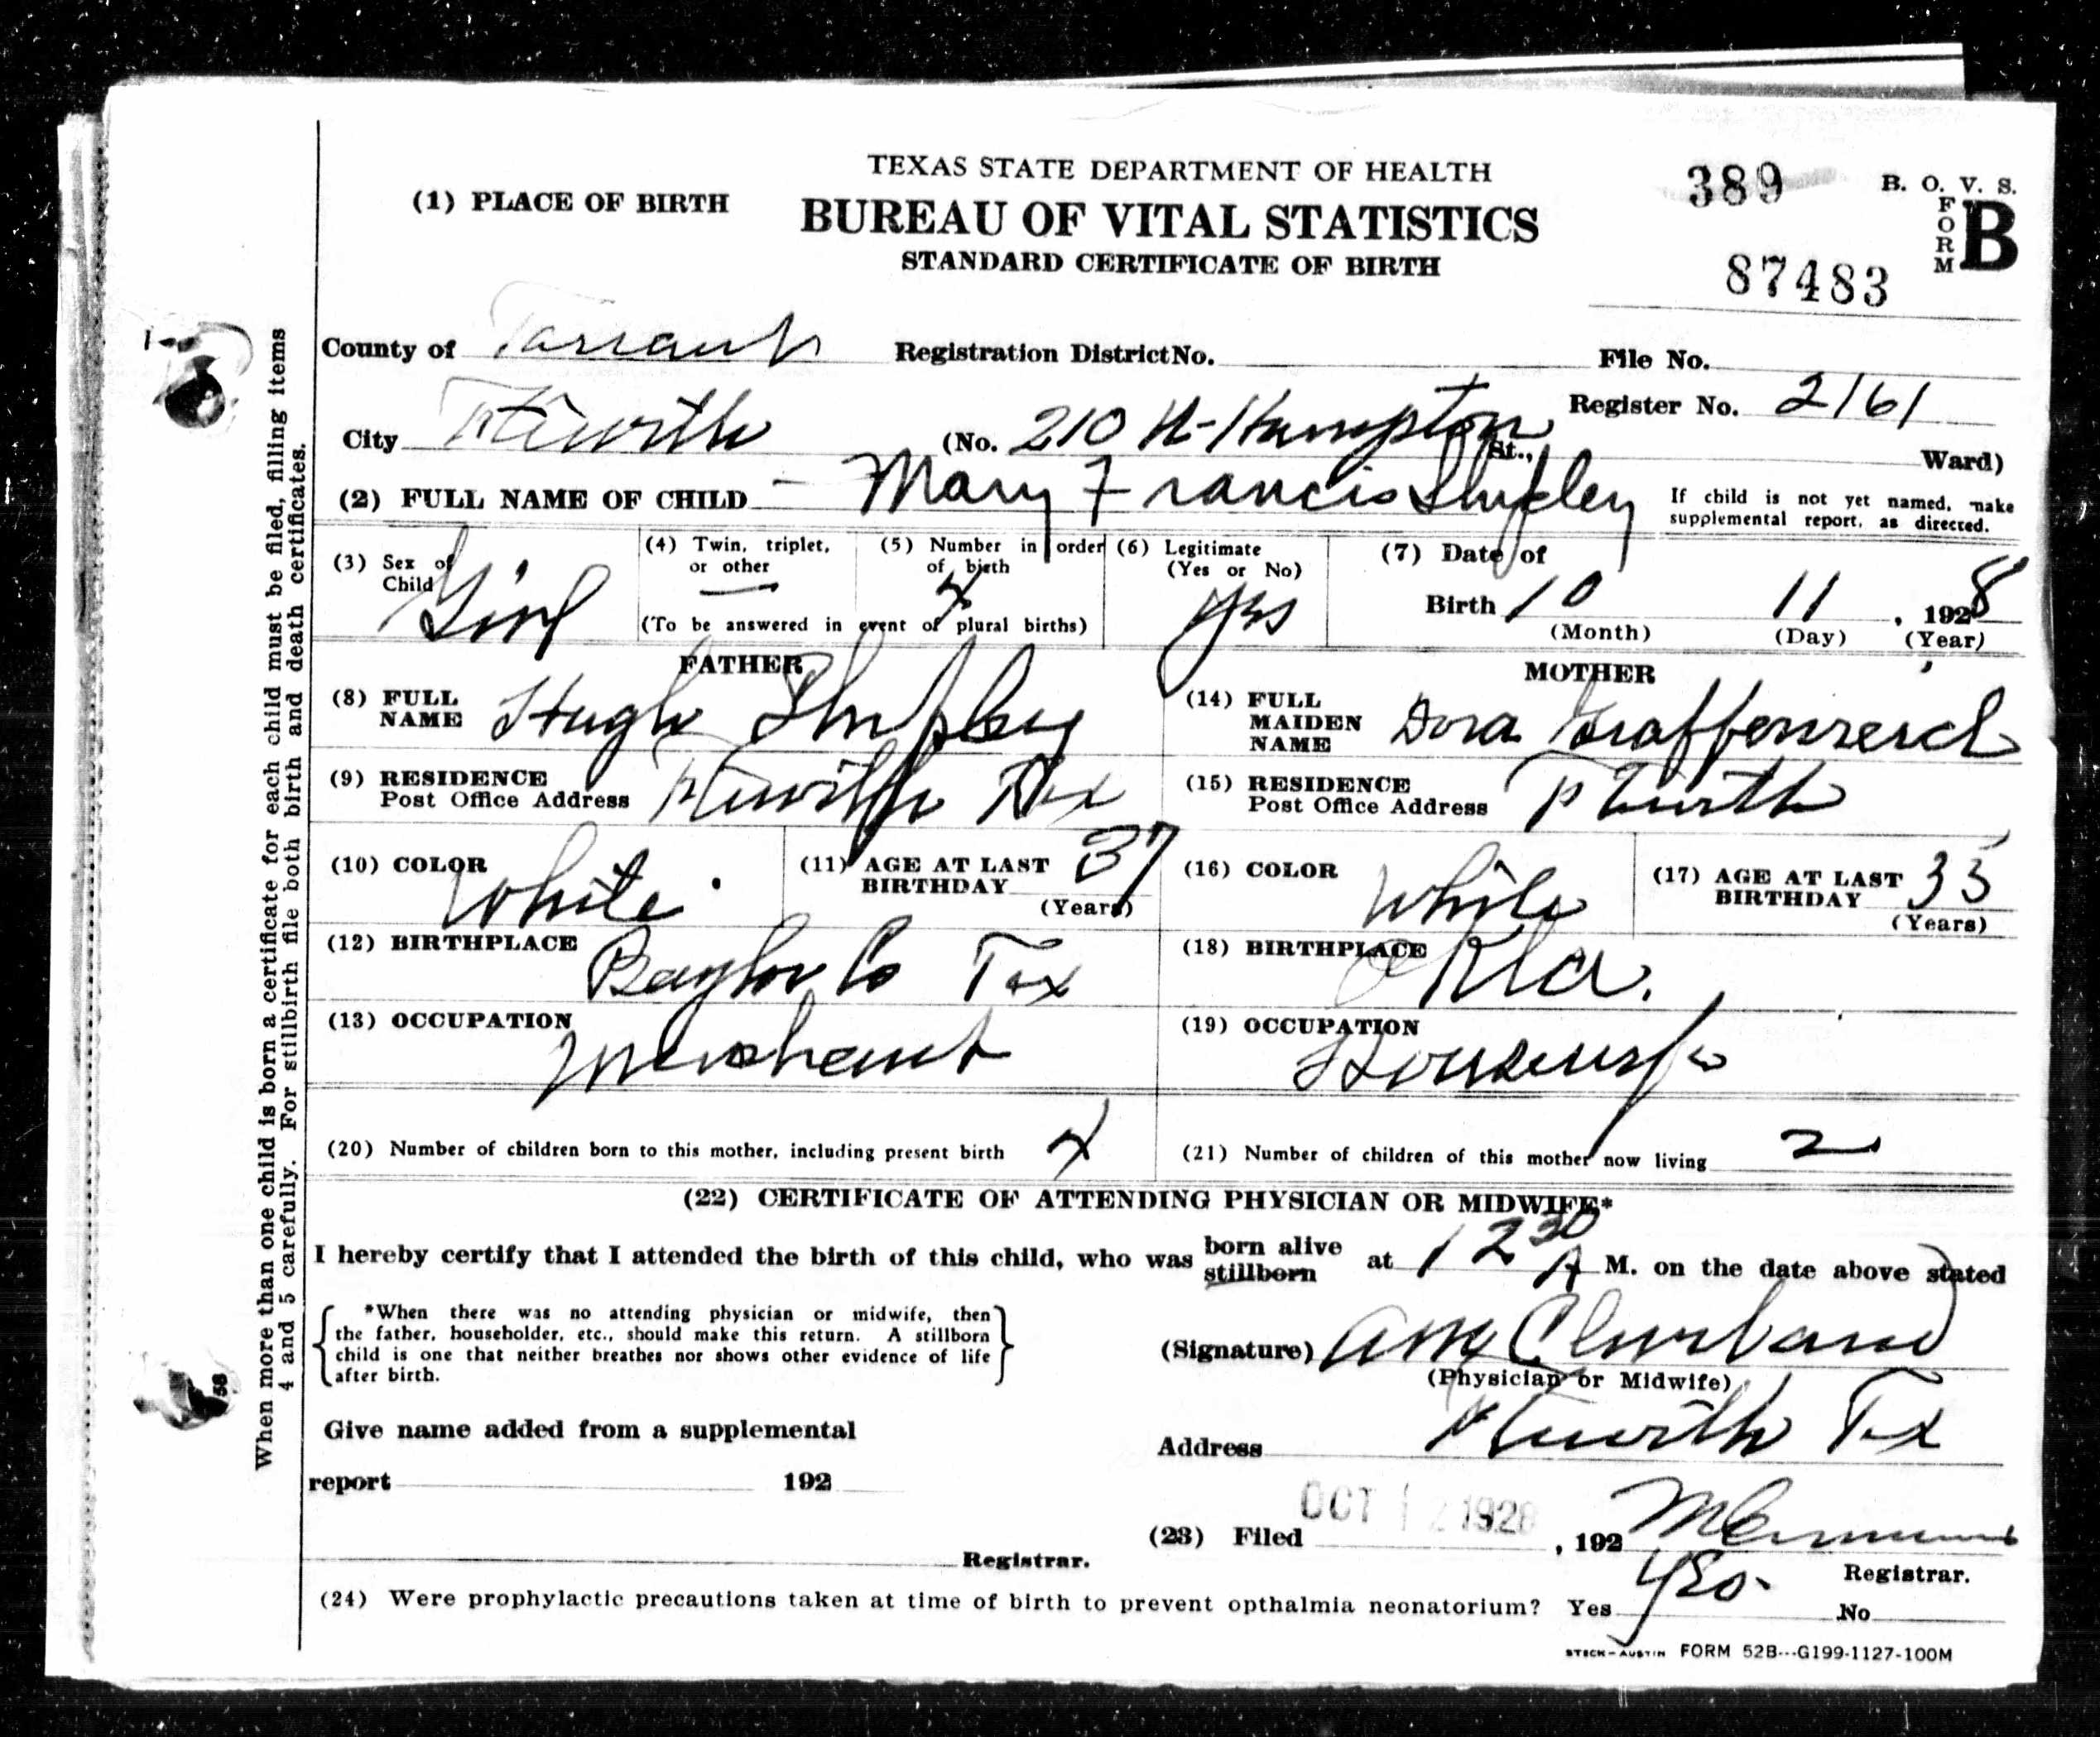 TEXAS STATE DEPARTMENT OF HEALTH
BUREAU OF VITAL STATISTICS
STANDARD CERTIFICATE OF BIRTH
389
B. O. V. S.
FORM B
87483
(1) PLACE OF BIRTH
County of Tarrant Registration District No. File No.
Register No. 2161
City Ft Worth (No. 210 N- Hampton St., Ward)
(2) FULL NAME OF CHILD Mary Francis Shipley If child is not yet named, make
supplemental report, as directed.
(3) Sex of Child Girl
(4) Twin, triplet, or other —
(5) Number in order of birth 4
(To be answered in event of plural births)
(6) Legitimate (Yes or No) yes
(7) Date of
Birth 10 11, 1928
(Month) (Day) (Year)
FATHER
(8) FULL NAME Hugh Shipley
(9) RESIDENCE
Post Office Address Ft Worth Tex
(10) COLOR White
(11) AGE AT LAST BIRTHDAY 37
(Years)
(12) BIRTHPLACE Baylor Co Tex
(13) OCCUPATION Merchant
MOTHER
(14) FULL MAIDEN NAME Dora Graffenreid
(15) RESIDENCE
Post Office Address Ft Worth
(16) COLOR White
(17) AGE AT LAST BIRTHDAY 33
(Years)
(18) BIRTHPLACE Okla.
(19) OCCUPATION Housewife
(20) Number of children born to this mother, including present birth 4
(21) Number of children of this mother now living 2
(22) CERTIFICATE OF ATTENDING PHYSICIAN OR MIDWIFE*
I hereby certify that I attended the birth of this child, who was born alive stillborn at 12 30 A M. on the date above stated
*When there was no attending physician or midwife, then
the father, householder, etc., should make this return. A stillborn
child is one that neither breathes nor shows other evidence of life
after birth.
(Signature)
(Physician or Midwife)
Address Ft Worth Tex
Give name added from a supplemental
report 192
Registrar.
(23) Filed OCT 12 1928, 192
Registrar.
(24) Were prophylactic precautions taken at time of birth to prevent opthalmia neonatorium? Yes yes. No
STECK-AUSTIN FORM 52B---G199-1127-100M
When more than one child is born a certificate for each child must be filed, filling items
4 and 5 carefully. For stillbirth file both birth and death certificates.
58